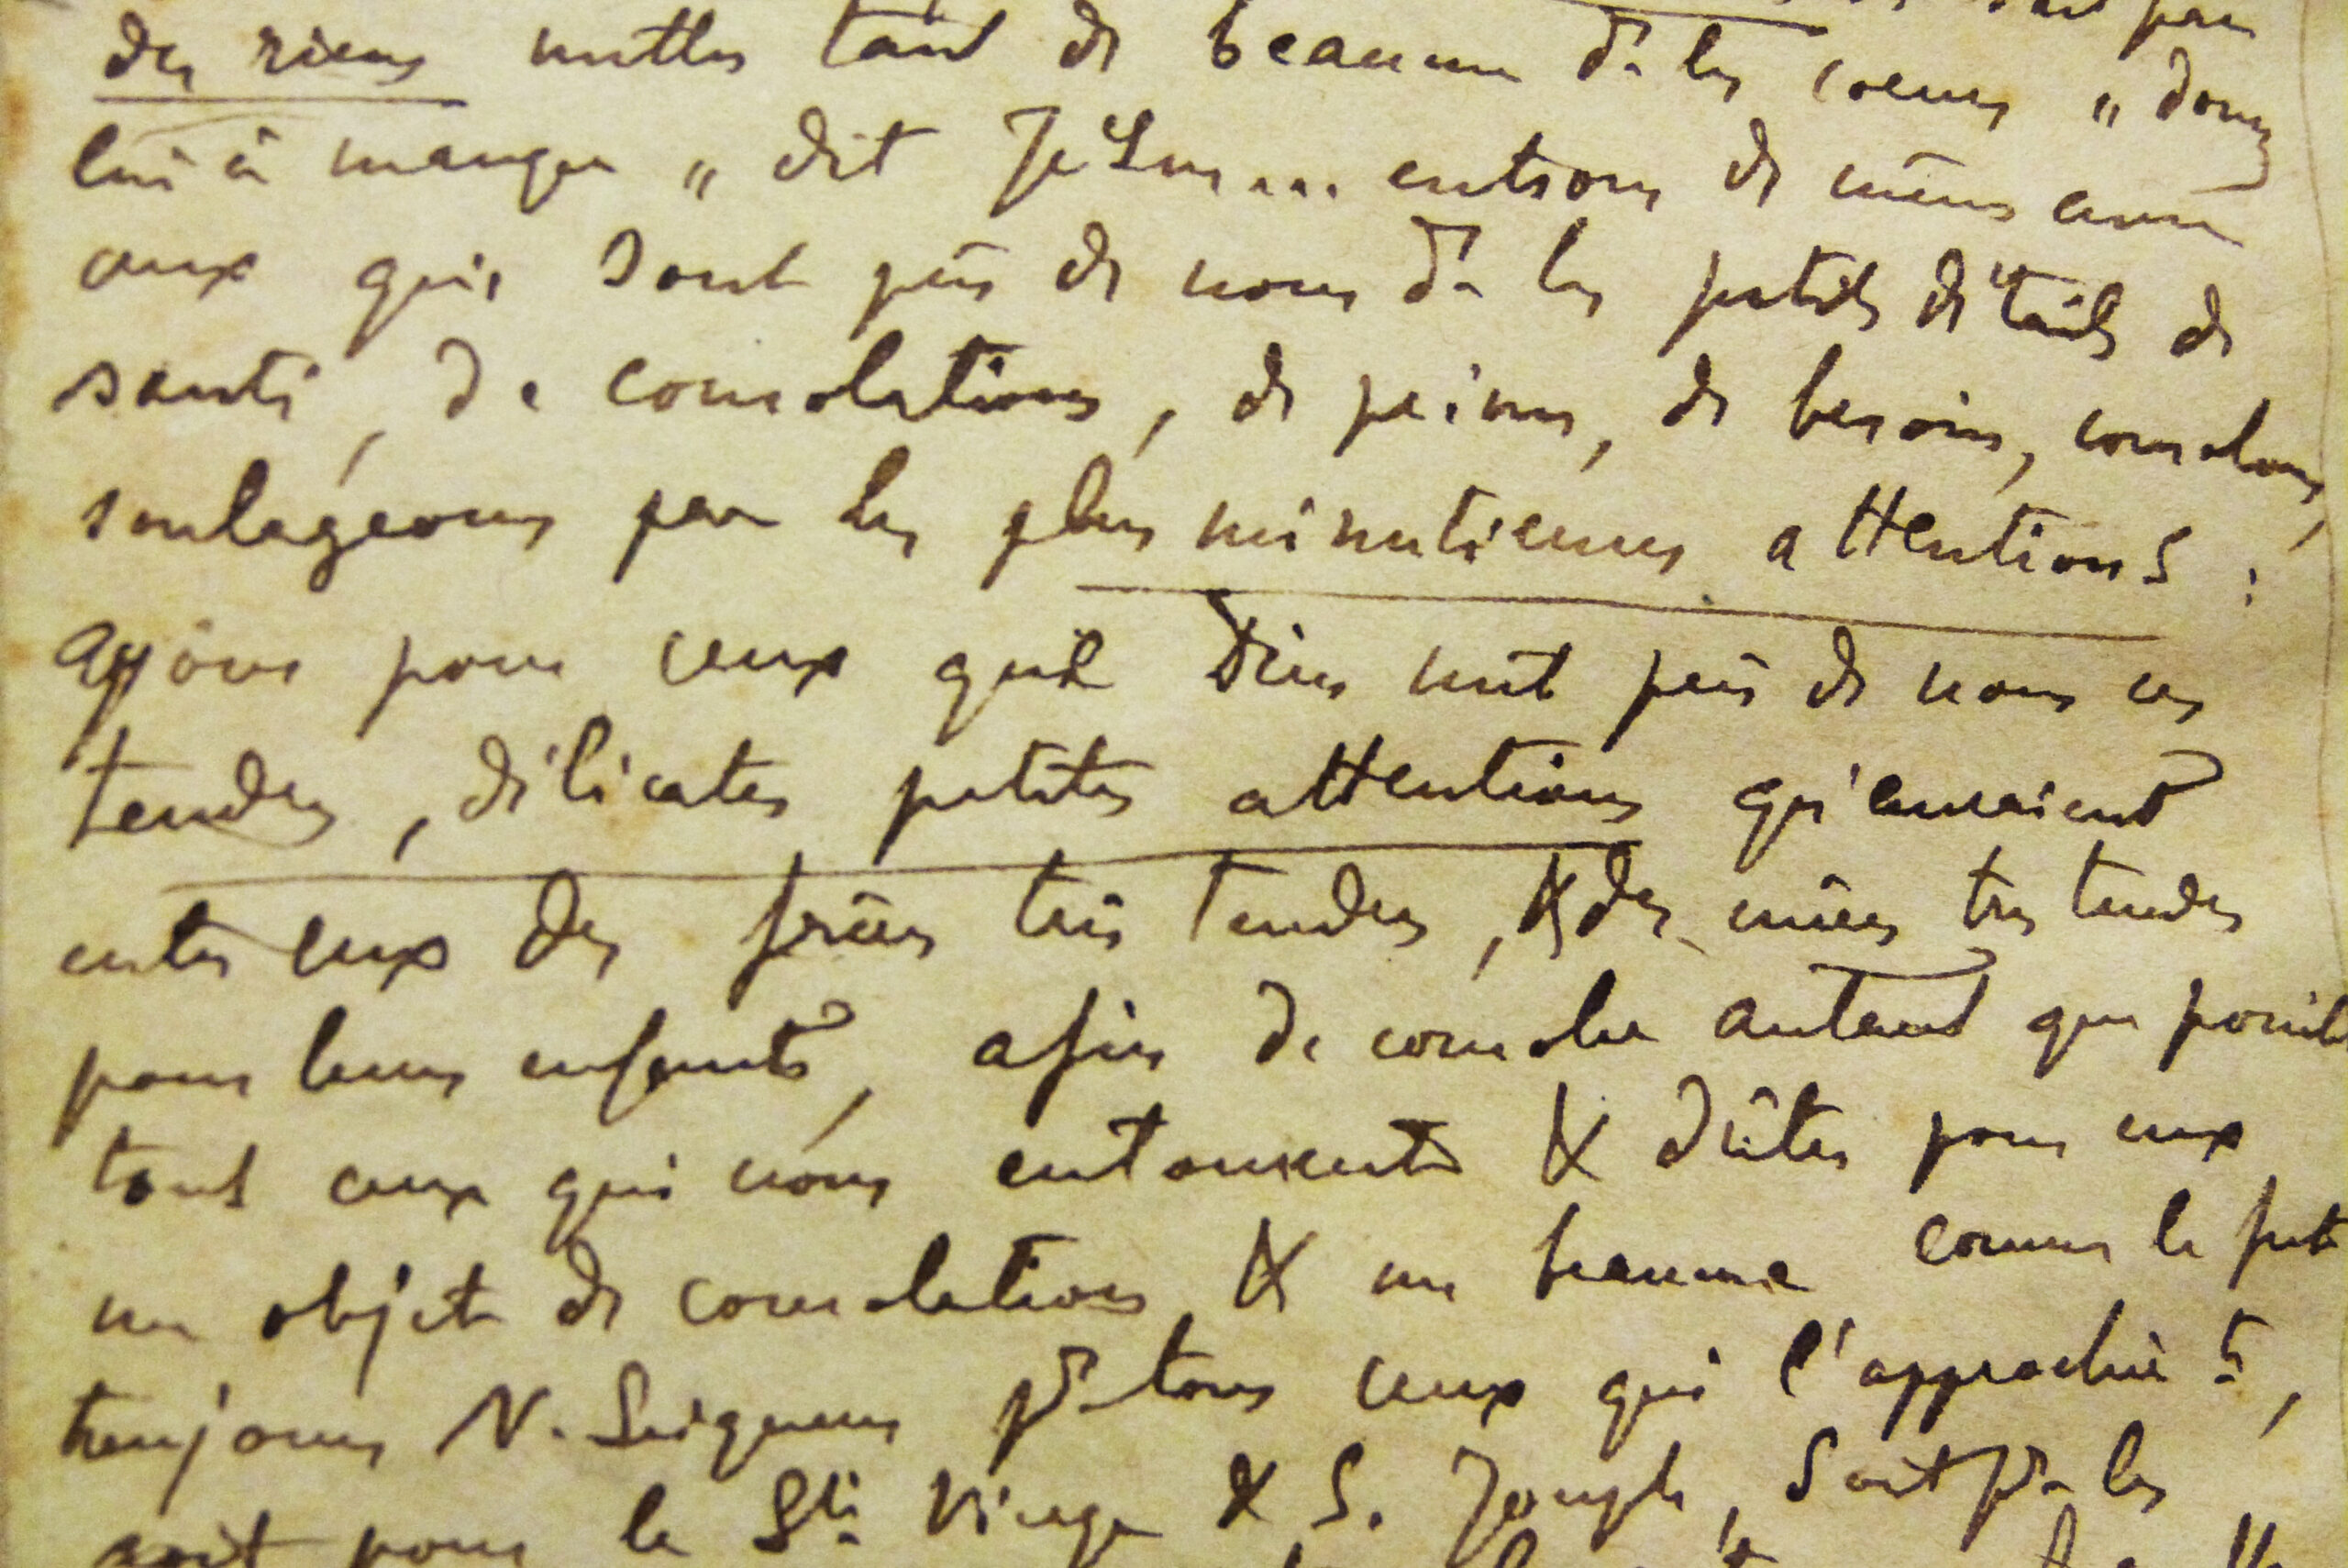 soit par
des riens mettre tant de beaume ds les coeurs „ donnez
lui à manger „ dit JéSus... entrons de même avec
ceux qui sont près de nous ds les petits détails de
santé, de consolations, de peines, de besoins, consolons,
soulageons par les plus minutieuses attentions :
ayons pour ceux que Dieu met près de nous ces
tendres, délicates petites attentions qu'auraient
entre eux des frères très tendres, & des mères très tendres
pour leurs enfants, afin de consoler autant que possible
tous ceux qui nous entourent & d'être pour eux
un objet de consolation & un beaume comme le fut
toujours N. Seigneur pr tous ceux qui l'approchèt,
soit pour la Ste Vierge & S. Joseph, soit pr les